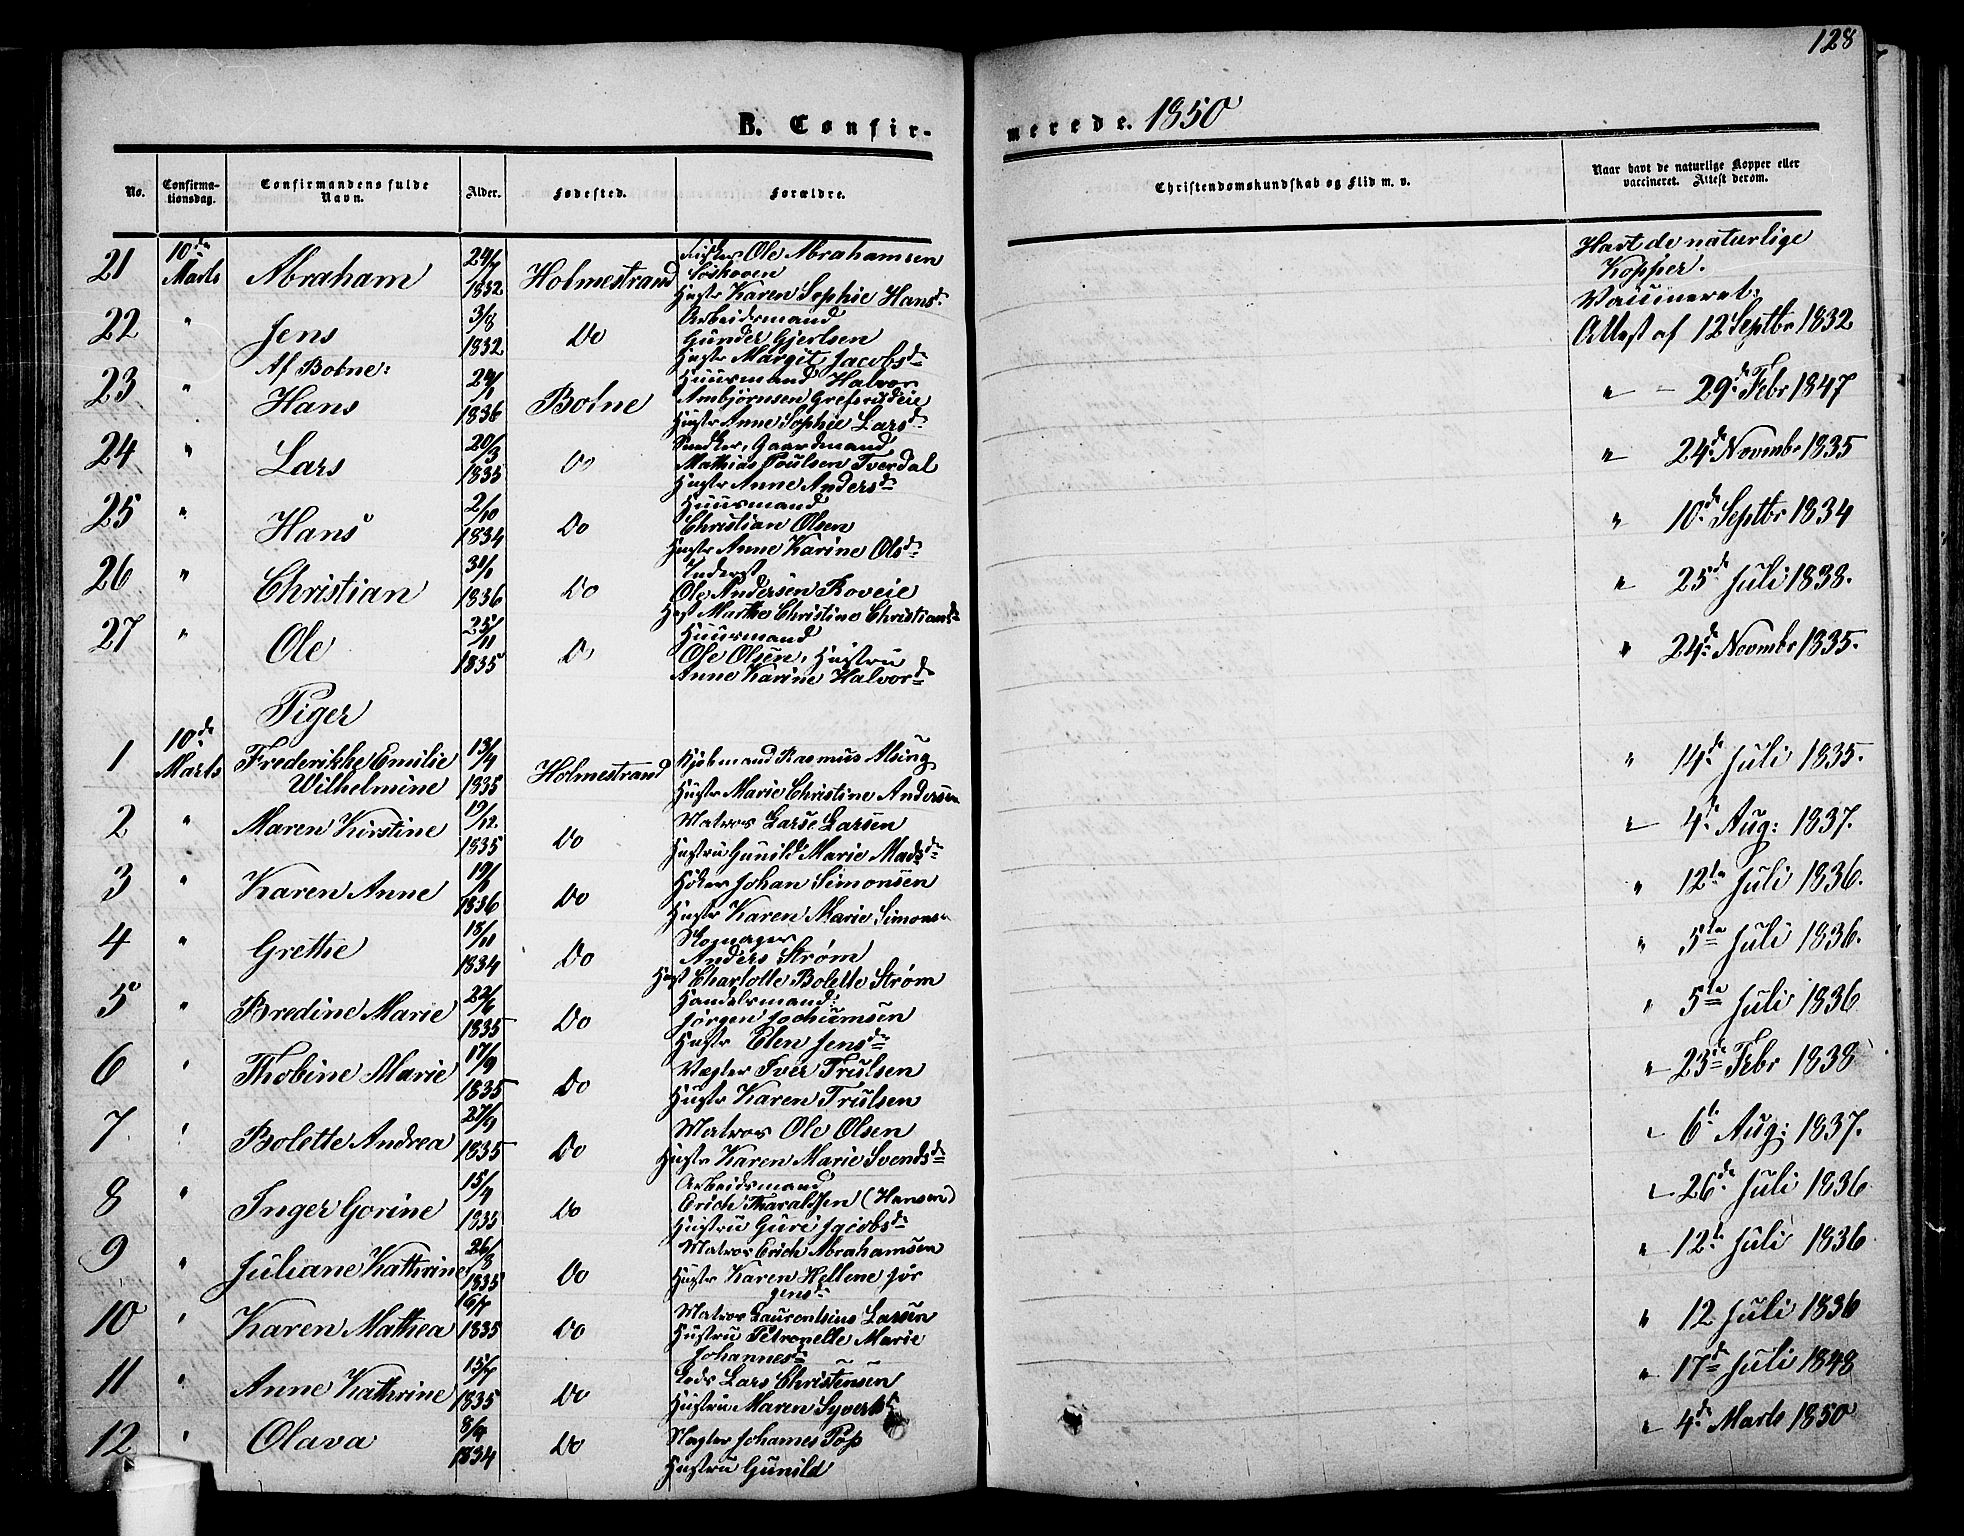 128
B. Confirmerede. 1850
No. Confirmationsdag. Confirmandens fulde Navn. Alder. Fødested. Forældre. Christendomskundskab og Flid m. v. Naar havt de naturlige Kopper eller vaccineret. Attest derom.
21 10de Marts Abraham 1832 Holmestrand Fisker Ole Abrahamsen
Hustr Karen Sophie Hansd
Havt de naturlige
Kopper.
Vaccineret:
22 " Jens 3/8 1832 Do Arbeidsmand
Gunder Gjertsen
Hustr Margit Jacobsd
Attest af 12 Septbr 1832
Af Botne:
23 " Hans 24/1 1836 Botne Huusmand Halvor
Ambjørnsen
Hustr Anne Sophie Larsd
" - 29de Febr 1847
24 " Lars 20/3 1835 Do Snedker, Gaardmand
Mathias Poulsen Tverdal
Hustr Anne Andersd
" 24de Novembr 1835
25 " Hans 2/10 1834 Do Huusmand
Christian Olsen
Hustr Anne Karine Olsd
" 10de Septbr 1834
26 " Christian 1836 Do Inderst
Ole Andersen Roveie
Hust Marthe Christine Christiansd
" 25de Juli 1838.
27 " Ole 25/11 1835 Do Huusmand
Ole Olsen, Hustru
Anne Karine Halvord
" 24de Novembr 1835.
Piger
1 10de Marts Frederikke Emilie
Wilhelmine
1835 Holmestrand Kjøbmand Rasmus Alsing
Hustr Marie Christine Andersen
" 14de Juli 1835.
2 " Maren Kirstine 19/12 1835 Do Matros Larse Larsen
Hustru Gunild Marie Madsd
" 4de Aug: 1837.
3 " Karen Anne 1836 Do Høker Johan Simonsen
Hustr Karen Marie Simonsen
" 12te Juli 1836.
4 " Grethe 18/11 1834 Do Skomager
Anders Strøm
Hust Charlotte Bolette Strøm
" 5te Juli 1836.
5 " Bredine Marie 22/6 1835 Do Handelsmand:
Jørgen Jochumsen
Hustr Elen Jensd
" 5te Juli 1836
6 " Thobine Marie 17/9 1835 Do Vægter Iver Trulsen
Hustr Karen Trulsen
" 23de Febr 1838
7 " Bolette Andrea 27/9 1835 Do Matros Ole Olsen
Hustr Karen Marie Svendsd
" 6te Aug: 1837.
8 " Inger Gorine 1835 Do Arbeidsmand
Erich Tharaldsen (Hansen)
Hustru Guri Jacobsd
" 26de Juli 1836
9 " Juliane Kathrine 26/3 1835 Do Matros Erich Abrahamsen
Hustr Karen Hellene Jør
gensd
" 12te Juli 1836
10 " Karen Mathea 16/7 1835 Do Matros Laurentsius Larsen
Hustru Petronelle Marie
Johannesd
" 12 Juli 1836
11 " Anne Kathrine 15/7 1835 Do Lods Lars Christensen
Hustru Maren Syverts
" 17de Juli 1848
12 " Olava 8/4 1834 Do Johannes
Hustru Gunild
" 4de Marts 1850